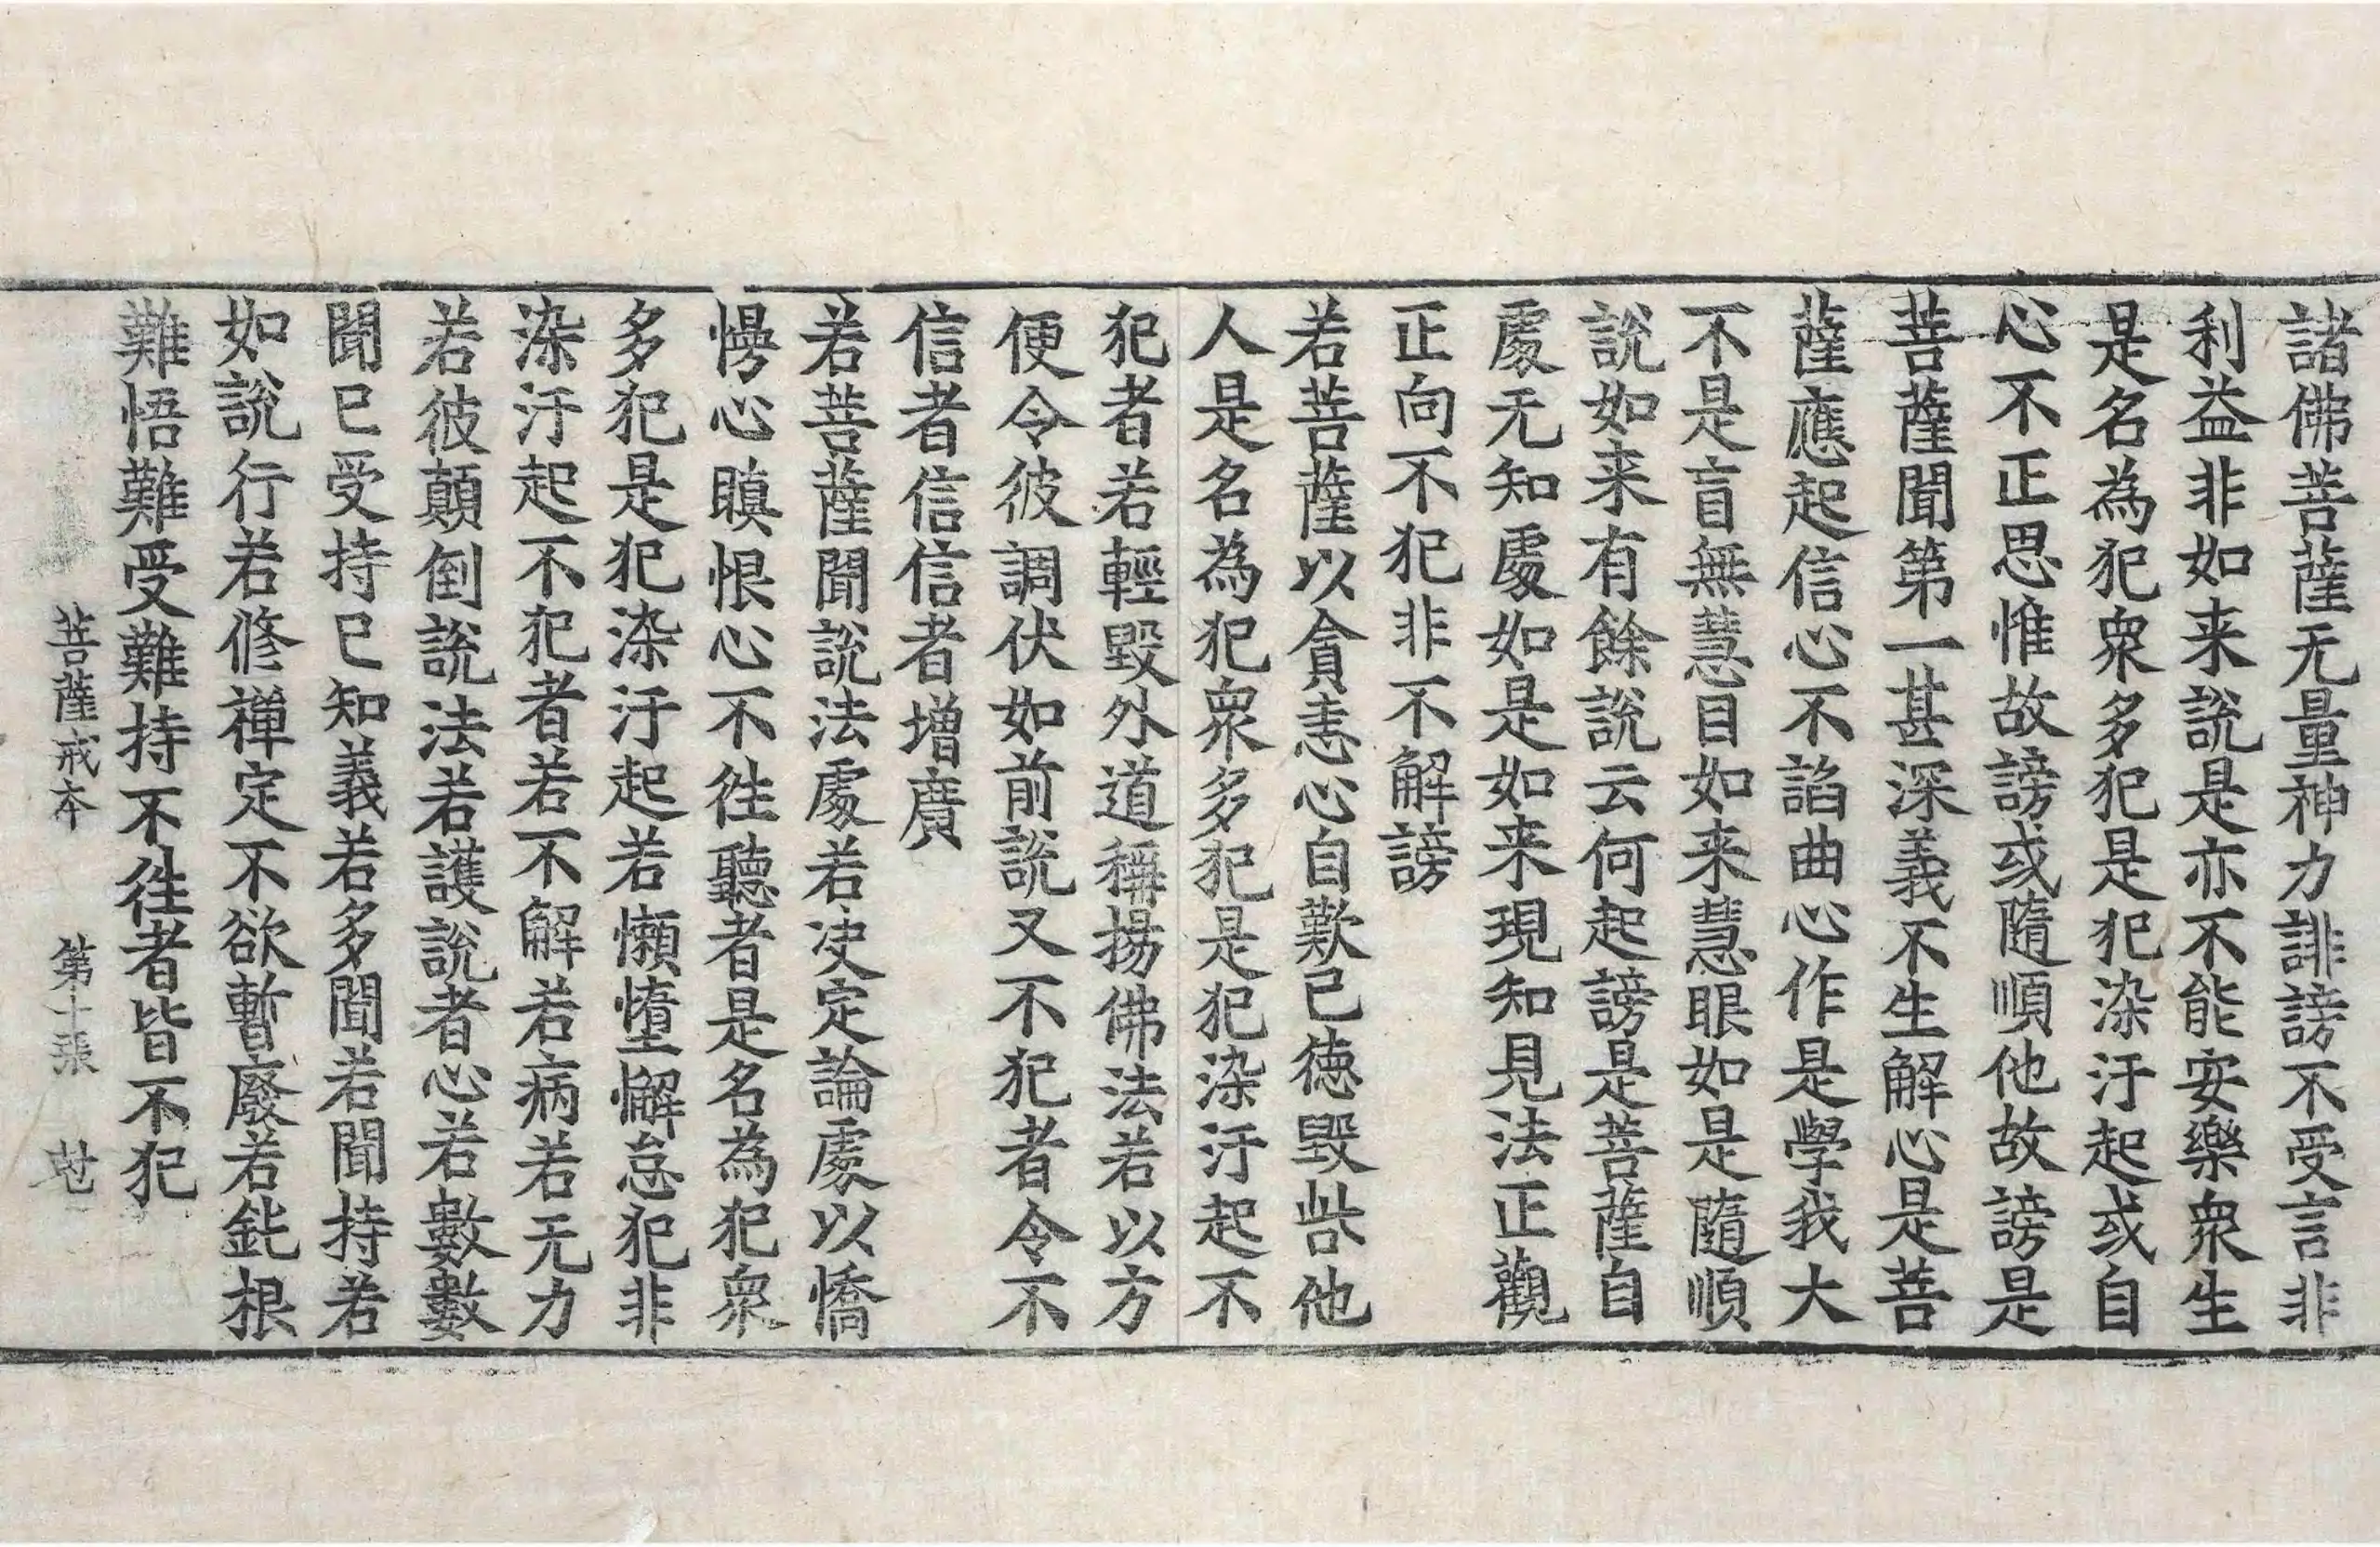 諸佛菩薩无量神力誹謗不受言非
利益非如来說是亦不能安樂衆生
是名為犯衆多犯是犯染汙起或自
心不正思惟故謗或隨順他故謗是
菩薩聞第一甚深義不生解心是菩
薩應起信心不諂曲心作是學我大
不是盲無慧目如来慧眼如是隨順
說如来有餘說云何起謗是菩薩自
處无知處如是如来現知見法正觀
正向不犯非不解謗
若菩薩以貪恚心自歎己德毀呰他
人是名為犯衆多犯是犯染汙起不
犯者若輕毀外道稱揚佛法若以方
便令彼調伏如前說又不犯者令不
信者信信者增廣
若菩薩聞說法處若决定論處以憍
慢心瞋恨心不往聽者是名為犯衆
多犯是犯染汙起若懶惰懈怠犯非
染汙起不犯者若不解若病若无力
若彼顛倒說法若護說者心若數數
聞已受持已知義若多聞若聞持若
如說行若修禪定不欲暫廢若鈍根
難悟難受難持不往者皆不犯
菩薩戒本　第十張